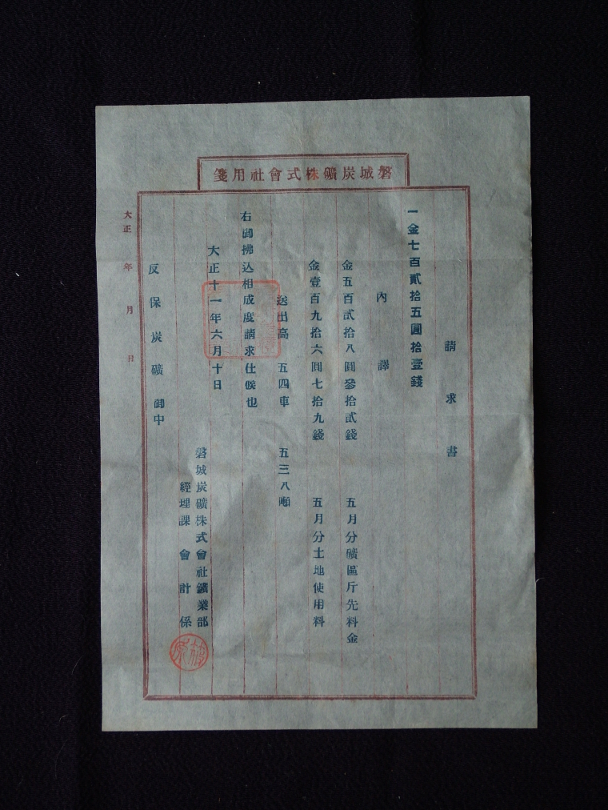 磐城炭礦株式會社用箋
請求書
一金七百貳拾五圓拾壹錢
內譯
金五百貳拾八圓參拾貳錢 五月分礦區斤先料金
金壹百九拾六圓七拾九錢 五月分土地使用料
送出高 五四車 五三八噸
右御拂込相成度請求仕候也
大正十一年六月十日
磐城炭礦株式會社鑛業部
經理課會計係
反保炭礦御中
大正 年 月 日